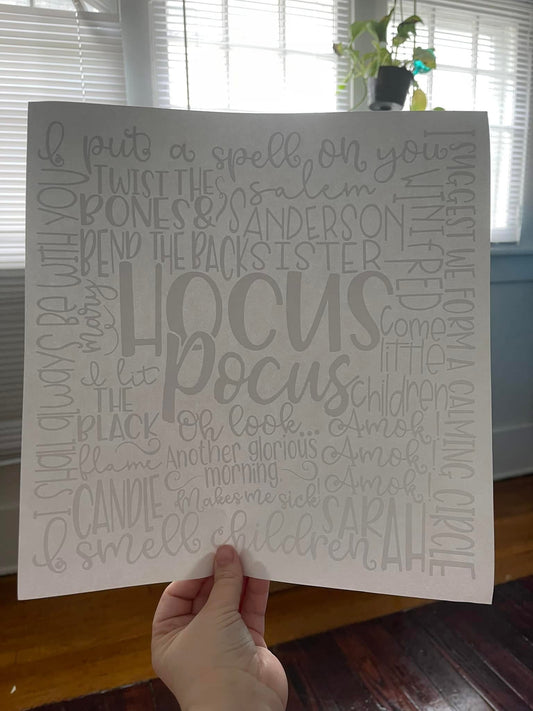 I put a spell on you
TWIST THE
BONES &
BEND THE BACK
salem
SANDERSON
SISTER
WINIFRED
I SUGGEST WE FORM A CALMING CIRCLE
I SHALL always BE WITH YOU
mary
HOCUS
Pocus
come
little
children
I lit
THE
BLACK
flame
CANDLE
Oh look...
Another glorious
morning.
Makes me sick!
Amok!
Amok!
Amok!
SARAH
I smell children